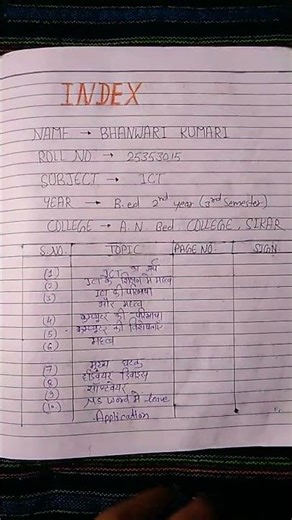 INDEX
NAME → BHANWARI KUMARI
ROLL NO → 25353015
SUBJECT → ICT
YEAR → B.ed 2nd year (3rd Semester)
COLLEGE → A.N Bed COLLEGE, SIKAR
S.NO. TOPIC PAGE NO. SIGN
(1) ICT का अर्थ
(2) ICT का शिक्षण में महत्व
(3) ICT की परिभाषा
और महत्व
(4) कम्प्यूटर की परिभाषा
(5) कम्प्यूटर की विशेषताएं
(6) महत्व
(7) मुख्य घटक
(8) हार्डवेयर डिवाइस
(9) सॉफ्टवेयर
(10) MS Word में
Application